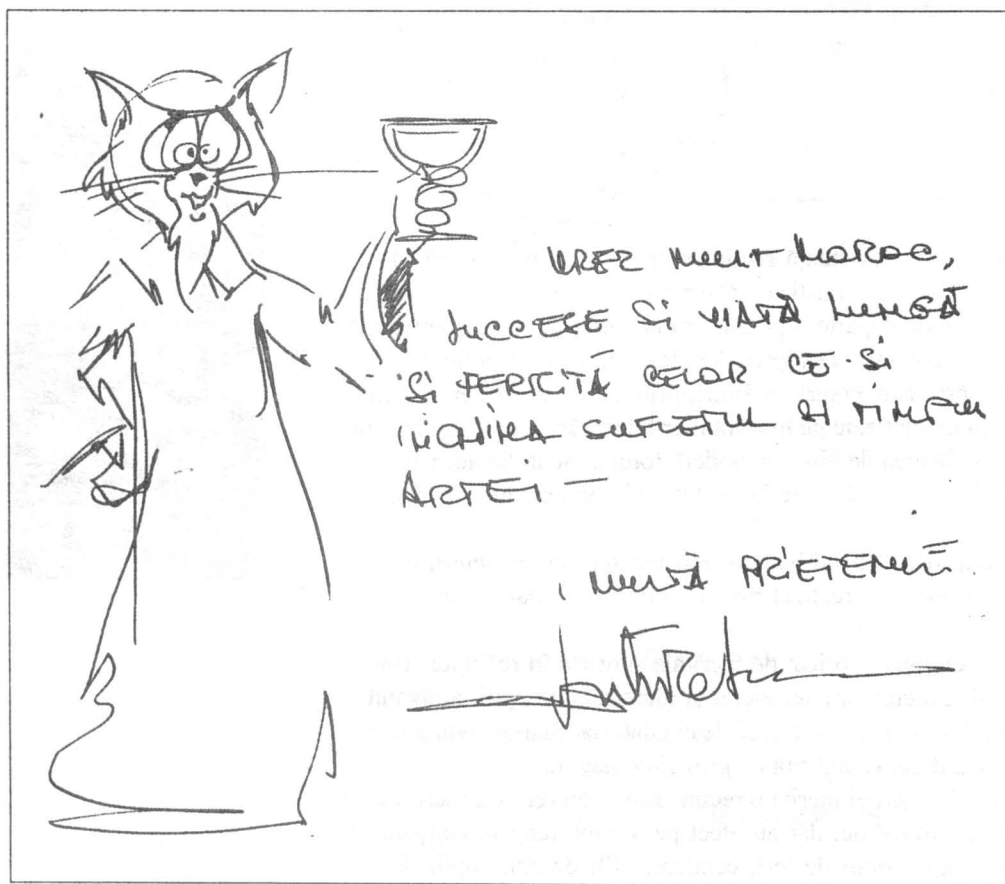 UREZ MULT NOROC,
SUCCESE SI VIATĂ LUNGĂ
SI FERICITĂ CELOR CE-SI
INCHINA SUFLETUL SI TIMPUL
ARTEI –
MULTĂ PRIETENIE